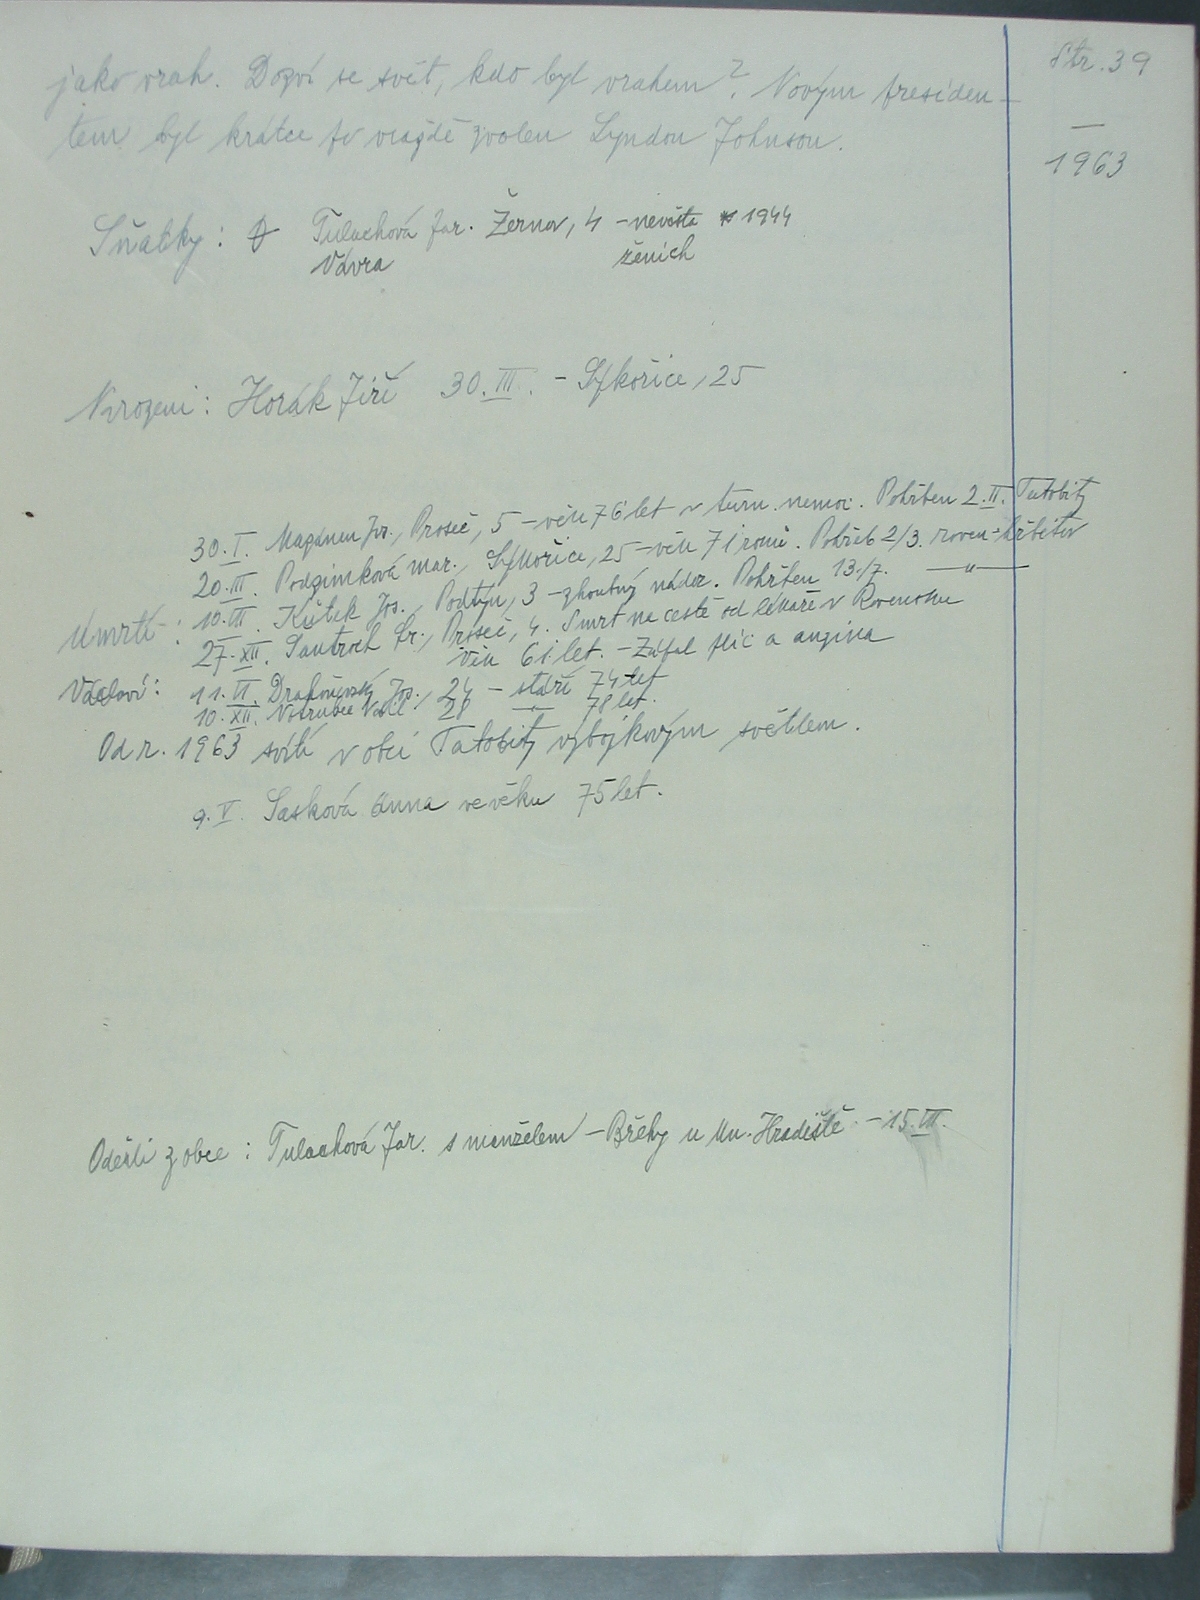 Str. 39
—
1963
jako vrah. Dozví se svět, kdo byl vrahem? Novým presiden-
tem byl krátce po vraždě zvolen Lyndon Johnson.
Sňatky: Tulachová Jar. Žernov, 4 - nevěsta * 1944
Vávra ženich
Narozeni: Horák Jiří 30.III. - Sýkořice, 25
30.I. Jos., Proseč, 5 - věk 76 let v turn. nemoc. Pohřben 2.II. Tatobity
20.III. Podzimková Mar., Sýkořice, 25 - věk 71 roků. Pohřeb 2/3. roven. hřbitov
Úmrtí: 10.VII. Kůtek Jos., Podtýn, 3 - zhoubný nádor. Pohřben 13./7. —"—
27.XII. Fr., Proseč, 4. Smrt na cestě od lékaře v Rovensku
Věk 61 let. - Zápal plic a angina
Václaví: 11.VI. Jos., 24 - stáří 74 let
10.XII. 28 —"— 78 let.
Od r. 1963 svítí v obci Tatobity výbojkovým světlem.
9.V. Sasková Anna ve věku 75 let.
Odešli z obce: Tulachová Jar. s manželem - Břehy u Mn. Hradiště - 15.VII.